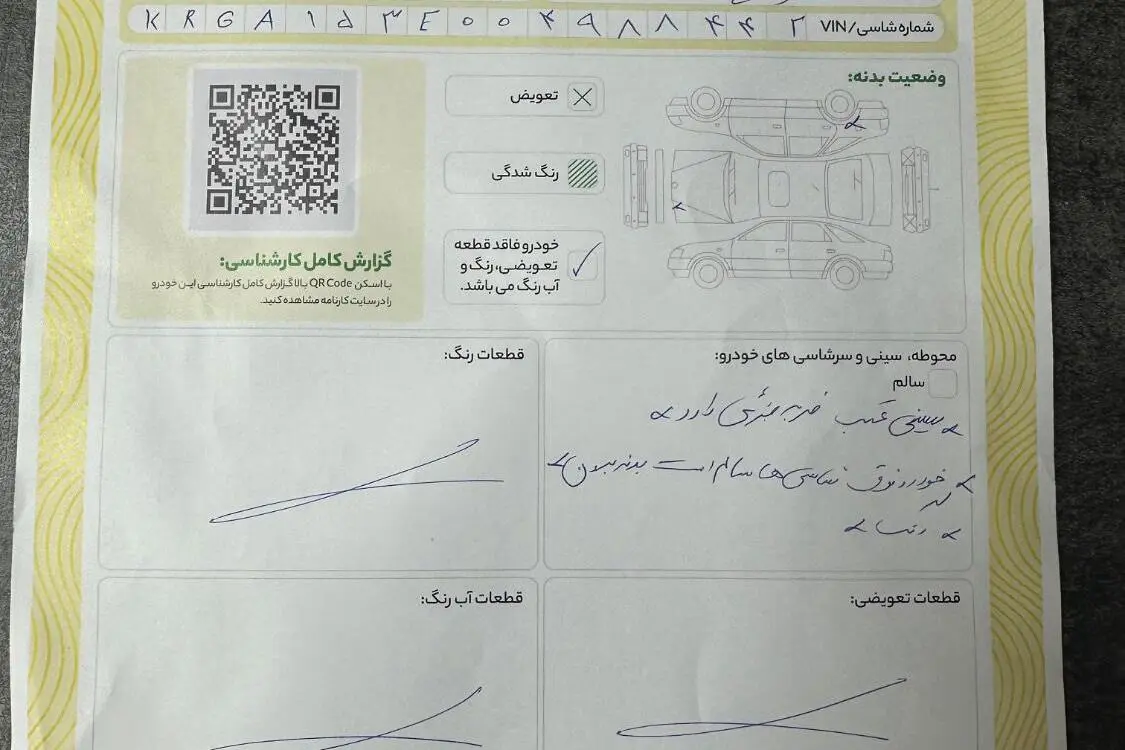 شماره شاسی/VIN K R G A ۱ ۵ ۳ E ۰ ۰ ۴ ۹ ۸ ۸ ۴ ۴ ۲
وضعیت بدنه:
تعویض
رنگ شدگی
خودرو فاقد قطعه
تعویضی، رنگ و
آب رنگ می باشد.
گزارش کامل کارشناسی:
با اسکن QR Code بالا گزارش کامل کارشناسی این خودرو
را در سایت کارنامه مشاهده کنید.
محوطه، سینی و سرشاسی های خودرو:
سالم
سینی عقب ضربه جزئی دارد
خودرو فوق شاسی ها سالم است بدنه بدون
قطعات رنگ:
قطعات تعویضی:
قطعات آب رنگ: